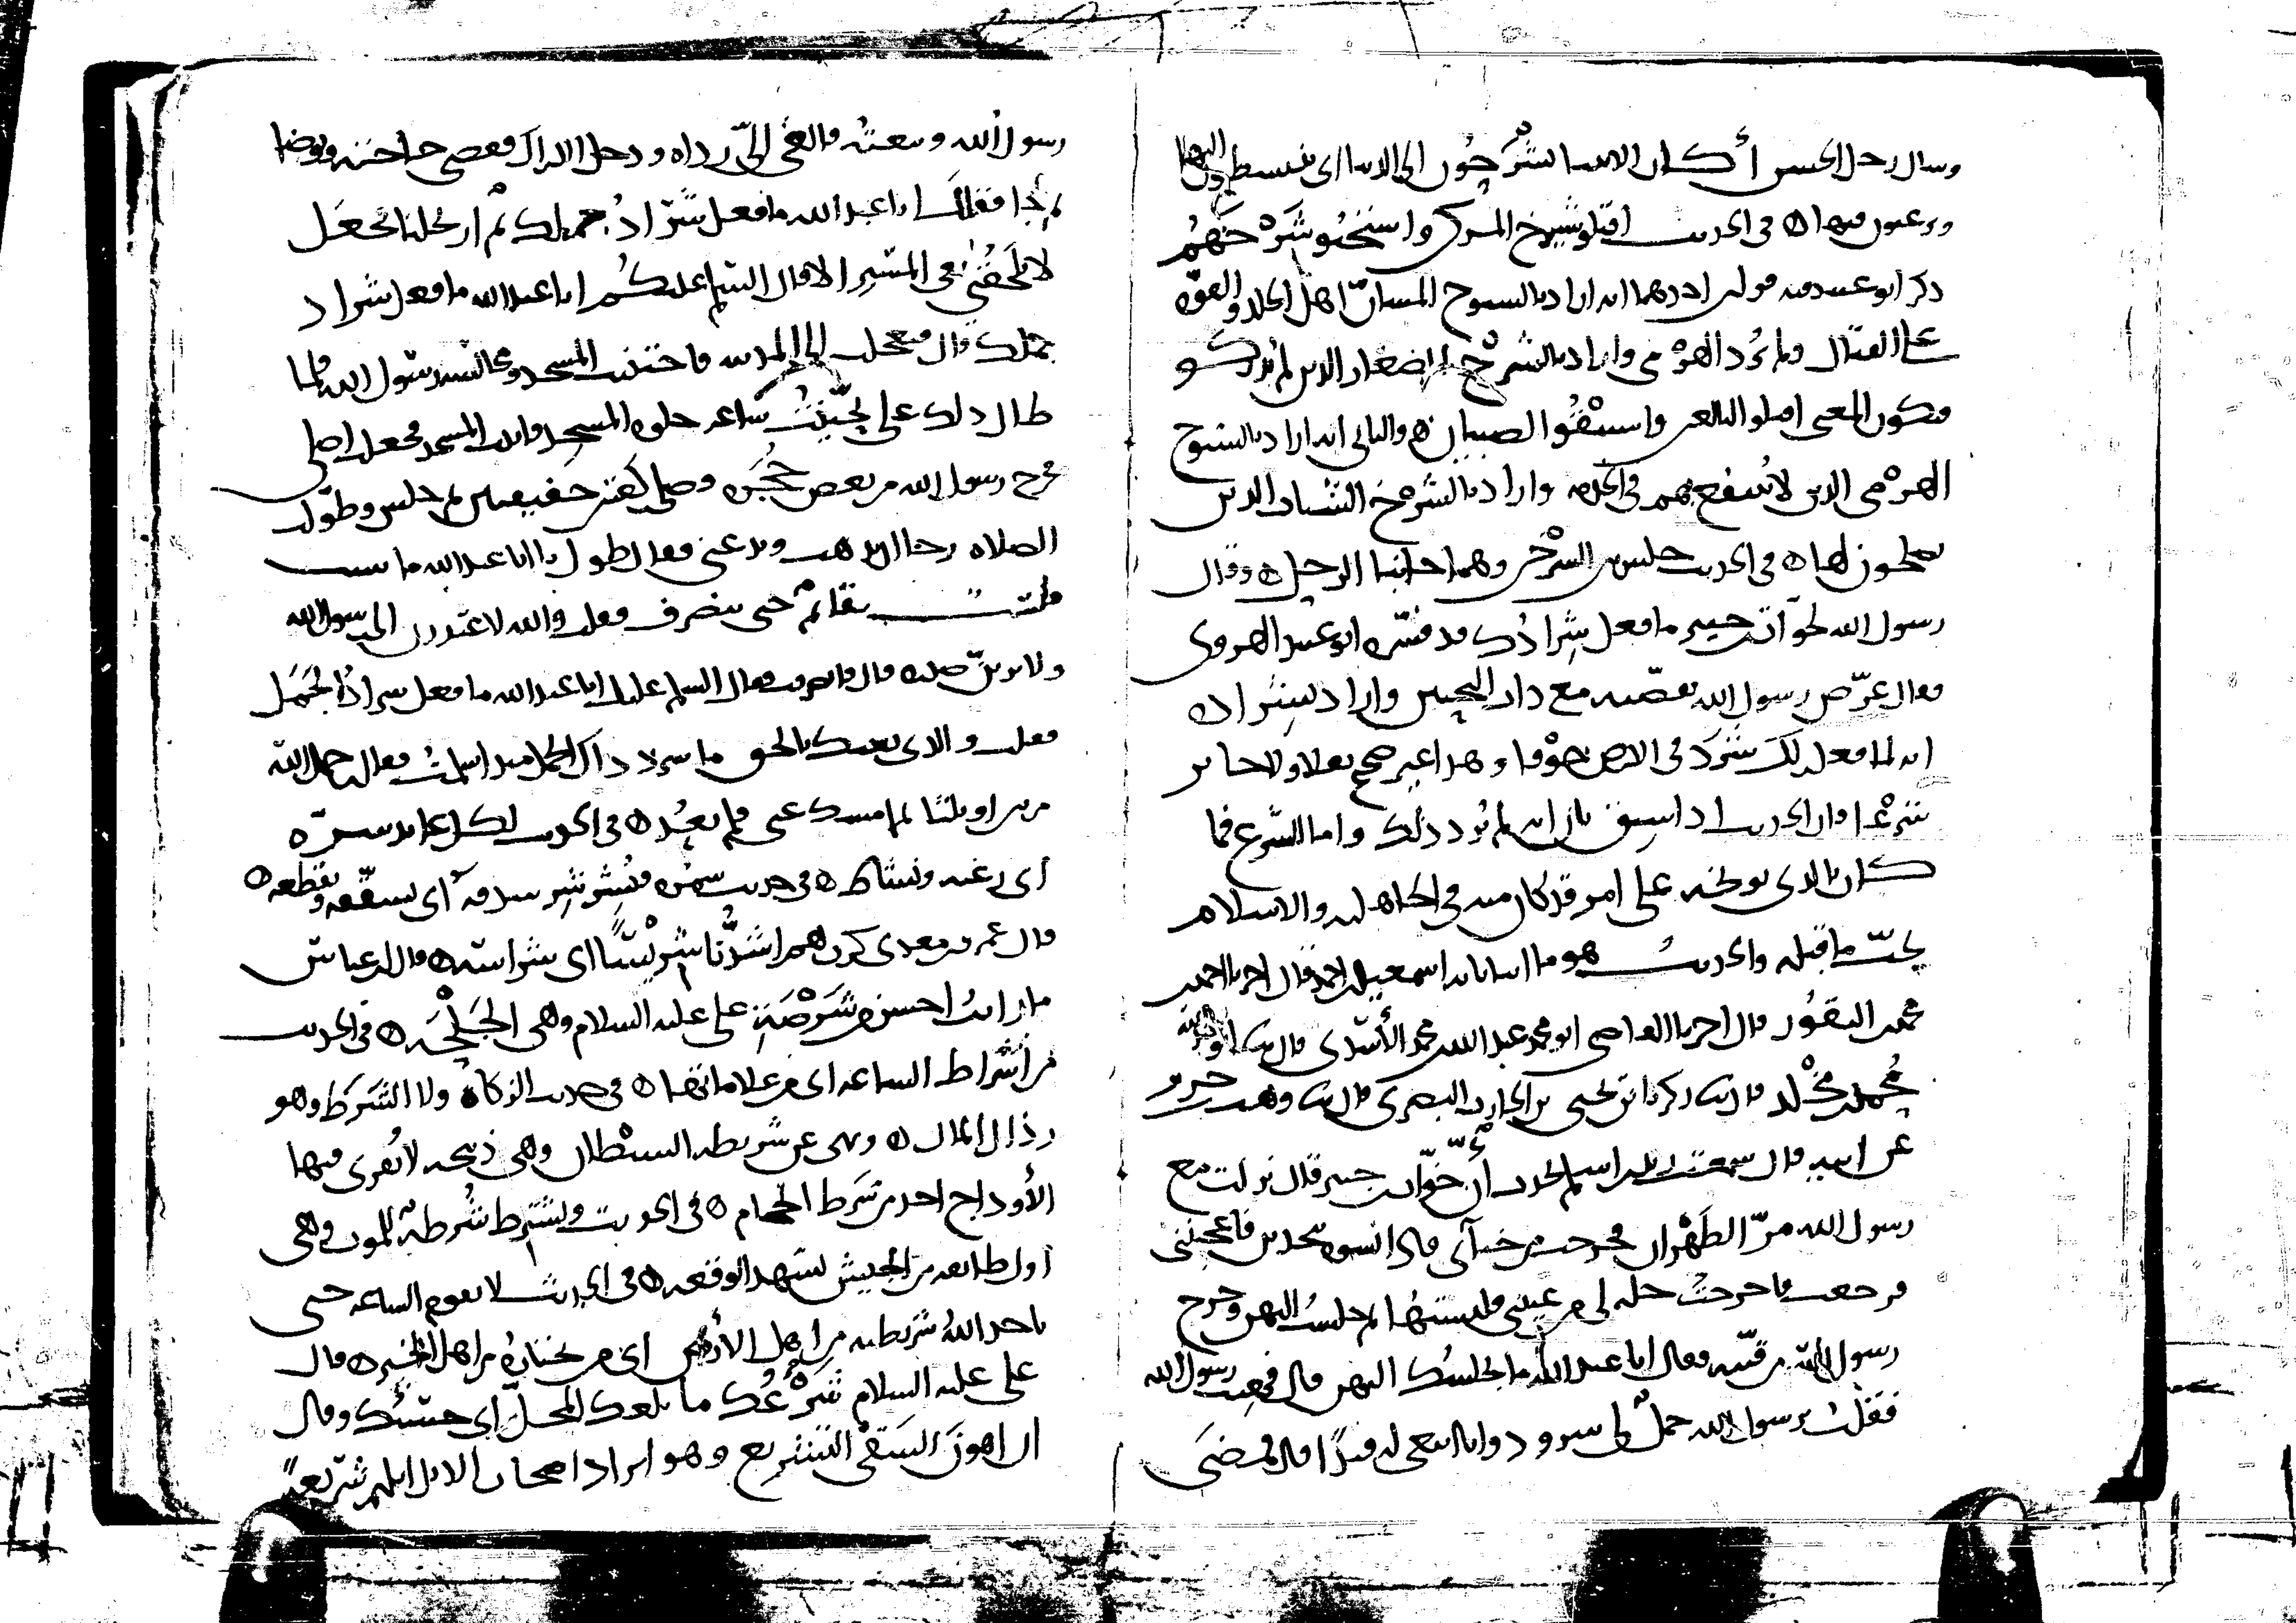 وسال رجل الحسن أكان الانبيا يشرحون الى الدنيا اى ينبسطون اليها
ويرغبون فيها ۞ فى الحديث اقتلوا شيوخ المشركين واستحيوا شرخهم
ذكر ابو عبيد فيه قولين احدهما انه اراد بالشيوخ المسان اهل الجلد والقوة
على القتال ولم يرد الهرمى واراد بالشرخ الصغار الذين لم يدركوا
فيكون المعنى اقتلوا البالغين واستبقوا الصبيان ۞ والثانى انه اراد بالشيوخ
الهرمى الذين لا ينتفع بهم فى الخدمة واراد بالشرخ الشباب الذين
يصلحون لها ۞ فى الحديث جلس بين الشرخين وهما جانبا الرحل ۞ وقال
رسول الله لخوات بن جبير ما فعل شرادك قد فسره ابو عبيد الهروى
فقال عرض رسول الله بقصته مع ذات النحيين واراد بشراده
انه لما فعل ذلك شرد فى الارض خوفا وهذا غير صحيح نقلا ولا جايز
شرعا فان الحديث اذا سيق بان انه لم يرد ذلك واما الشرع فما
كان بالذى يوبخه على امر قد كان منه فى الجاهلية والاسلام
يجب ما قبله والحديث هو ما انبانا به اسمعيل بن احمد قال اخبرنا احمد بن
محمد النقور قال اخبرنا القاضى ابو محمد عبد الله بن محمد الأسدى قال ثنا ابو عبد الله
محمد بن مخلد قال ثنا زكريا بن يحيى بن الحارث البصرى قال ثنا وهب بن جرير
عن ابيه قال سمعت زيد بن اسلم يحدث أن خوات بن جبير قال نزلت مع
رسول الله مر الظهران فخرجت من خبائى فاذا نسوة يتحدثن فاعجبننى
فرجعت فاخرجت حلة لى من عيبتى فلبستها ثم جلست اليهن وخرج
رسول الله من قبته فقال ابا عبد الله ما يجلسك اليهن قال فهبت رسول الله
فقلت يا رسول الله جمل لى شرود وانا ابتغى له قيدا قال فمضى
رسول الله وتبعته فالقى الى رداه ودخل الاراك فقضى حاجته وتوضا
ثم جا فقال ابا عبد الله ما فعل شراد جملك ثم ارتحلنا فجعل
لا يلحقنى فى المسير الا قال السلم عليكم ابا عبد الله ما فعل شراد
جملك قال فتعجلت الى المدينة فاجتنبت المسجد ومجالسة رسول الله فلما
طال ذلك على تحينت ساعة خلوة المسجد فاتيت المسجد فجعلت اصلى
فخرج رسول الله من بعض حجره فصلى ركعتين خفيفتين ثم جلس وطولت
الصلاة رجا ان يذهب ويدعنى فقال طول يا ابا عبد الله ما شيت
فلست بقائم حتى تنصرف فقلت والله لاعتذرن الى رسول الله
ولابرين صدره قال فانصرفت فقال السلم عليك ابا عبد الله ما فعل شراد الجمل
فقلت والذى بعثك بالحق ما شرد ذاك الجمل منذ اسلمت فقال رحمك الله
مرتين او ثلثا ثم امسك عنى فلم يعد ۞ فى الحديث لكل عابد شرة
اى رغبة ونشاط ۞ فى حديث فيشرشر شدقه أى يشققه ويقطعه ۞
قال عمرو بن معدى كرب هم اشدنا شريسا اى شراسة ۞ قال ابن عباس
ما رايت احسن من شرصة على عليه السلام وهى الجلحة ۞ فى الحديث
من أشراط الساعة اى من علاماتها ۞ فى حديث الزكاة ولا الشرط وهو
رذال المال ۞ ونهى عن شريطة الشيطان وهى ذبيحة لا تفرى فيها
الأوداج اخذ من شرط الحجام ۞ فى الحديث وتشترط شرطة للموت وهى
اول طايفة من الجيش تشهد الوقعة ۞ فى الحديث لا تقوم الساعة حتى
ياخذ الله شريطته من اهل الأرض اى من يختاره من اهل الخير ۞ قال
على عليه السلام شرعك ما بلغك المحل اى حسبك وقال
ان اهون السقى التشريع وهو ايراد اصحاب الابل ابلهم شريعة